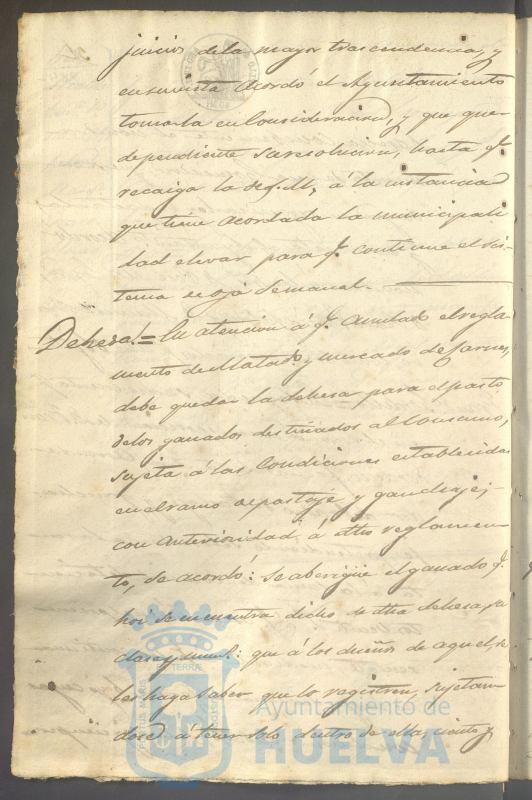 juicios de la mayor trascendencia, y
en su vista acordó el Ayuntamiento
tomarla en consideracion, y que que-
de pendiente su resolucion, hasta qe.
recaiga la de S.M. á la instancia
que tiene acordada la municipali
dad elevar para qe. continue el sis-
tema de oja semanal.
Dehesa! = En atencion á qe. anulado el regla-
mento de Matado. y mercado de Carnes,
debe quedar la dehesa para el pasto
de los ganados destinados al Consumo,
sujeta á las Condiciones establecidas
en el ramo de pastaje y ganchaje,
con anterioridad á dho reglamen-
to, se acordó: se aberigüe el ganado qe.
hoi se encuentra de dha dehesa, su
clase y num.: que á los dueños de aquel, se
les haga saber que lo registren, sujetan-
dose á tener solo dentro de ella, ciento y
Ayuntamiento de
HUELVA
PORTUS MARIS
ET TERRAE